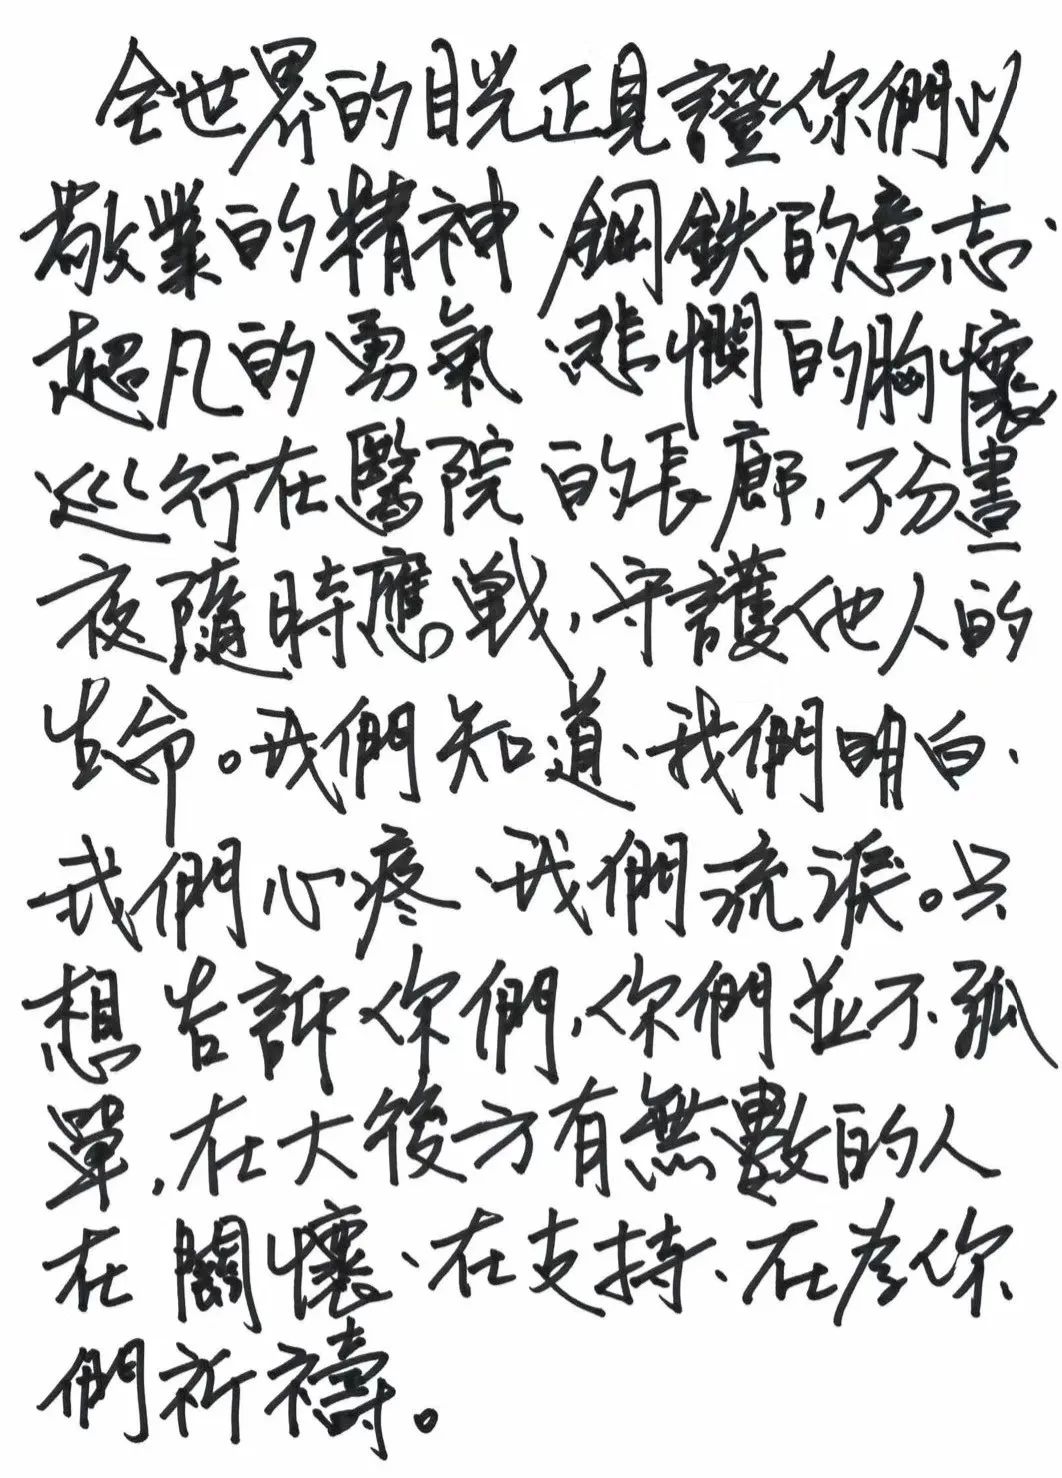 全世界的目光正見證你們以
敬業的精神、鋼鉄的意志、
超凡的勇氣、悲憫的胸懷
巡行在醫院的長廊，不分晝
夜隨時應戰，守護他人的
生命。我們知道、我們明白、
我們心疼、我們流淚。只
想告訴你們，你們並不孤
單，在大後方有無數的人
在關懷、在支持、在為你
們祈禱。